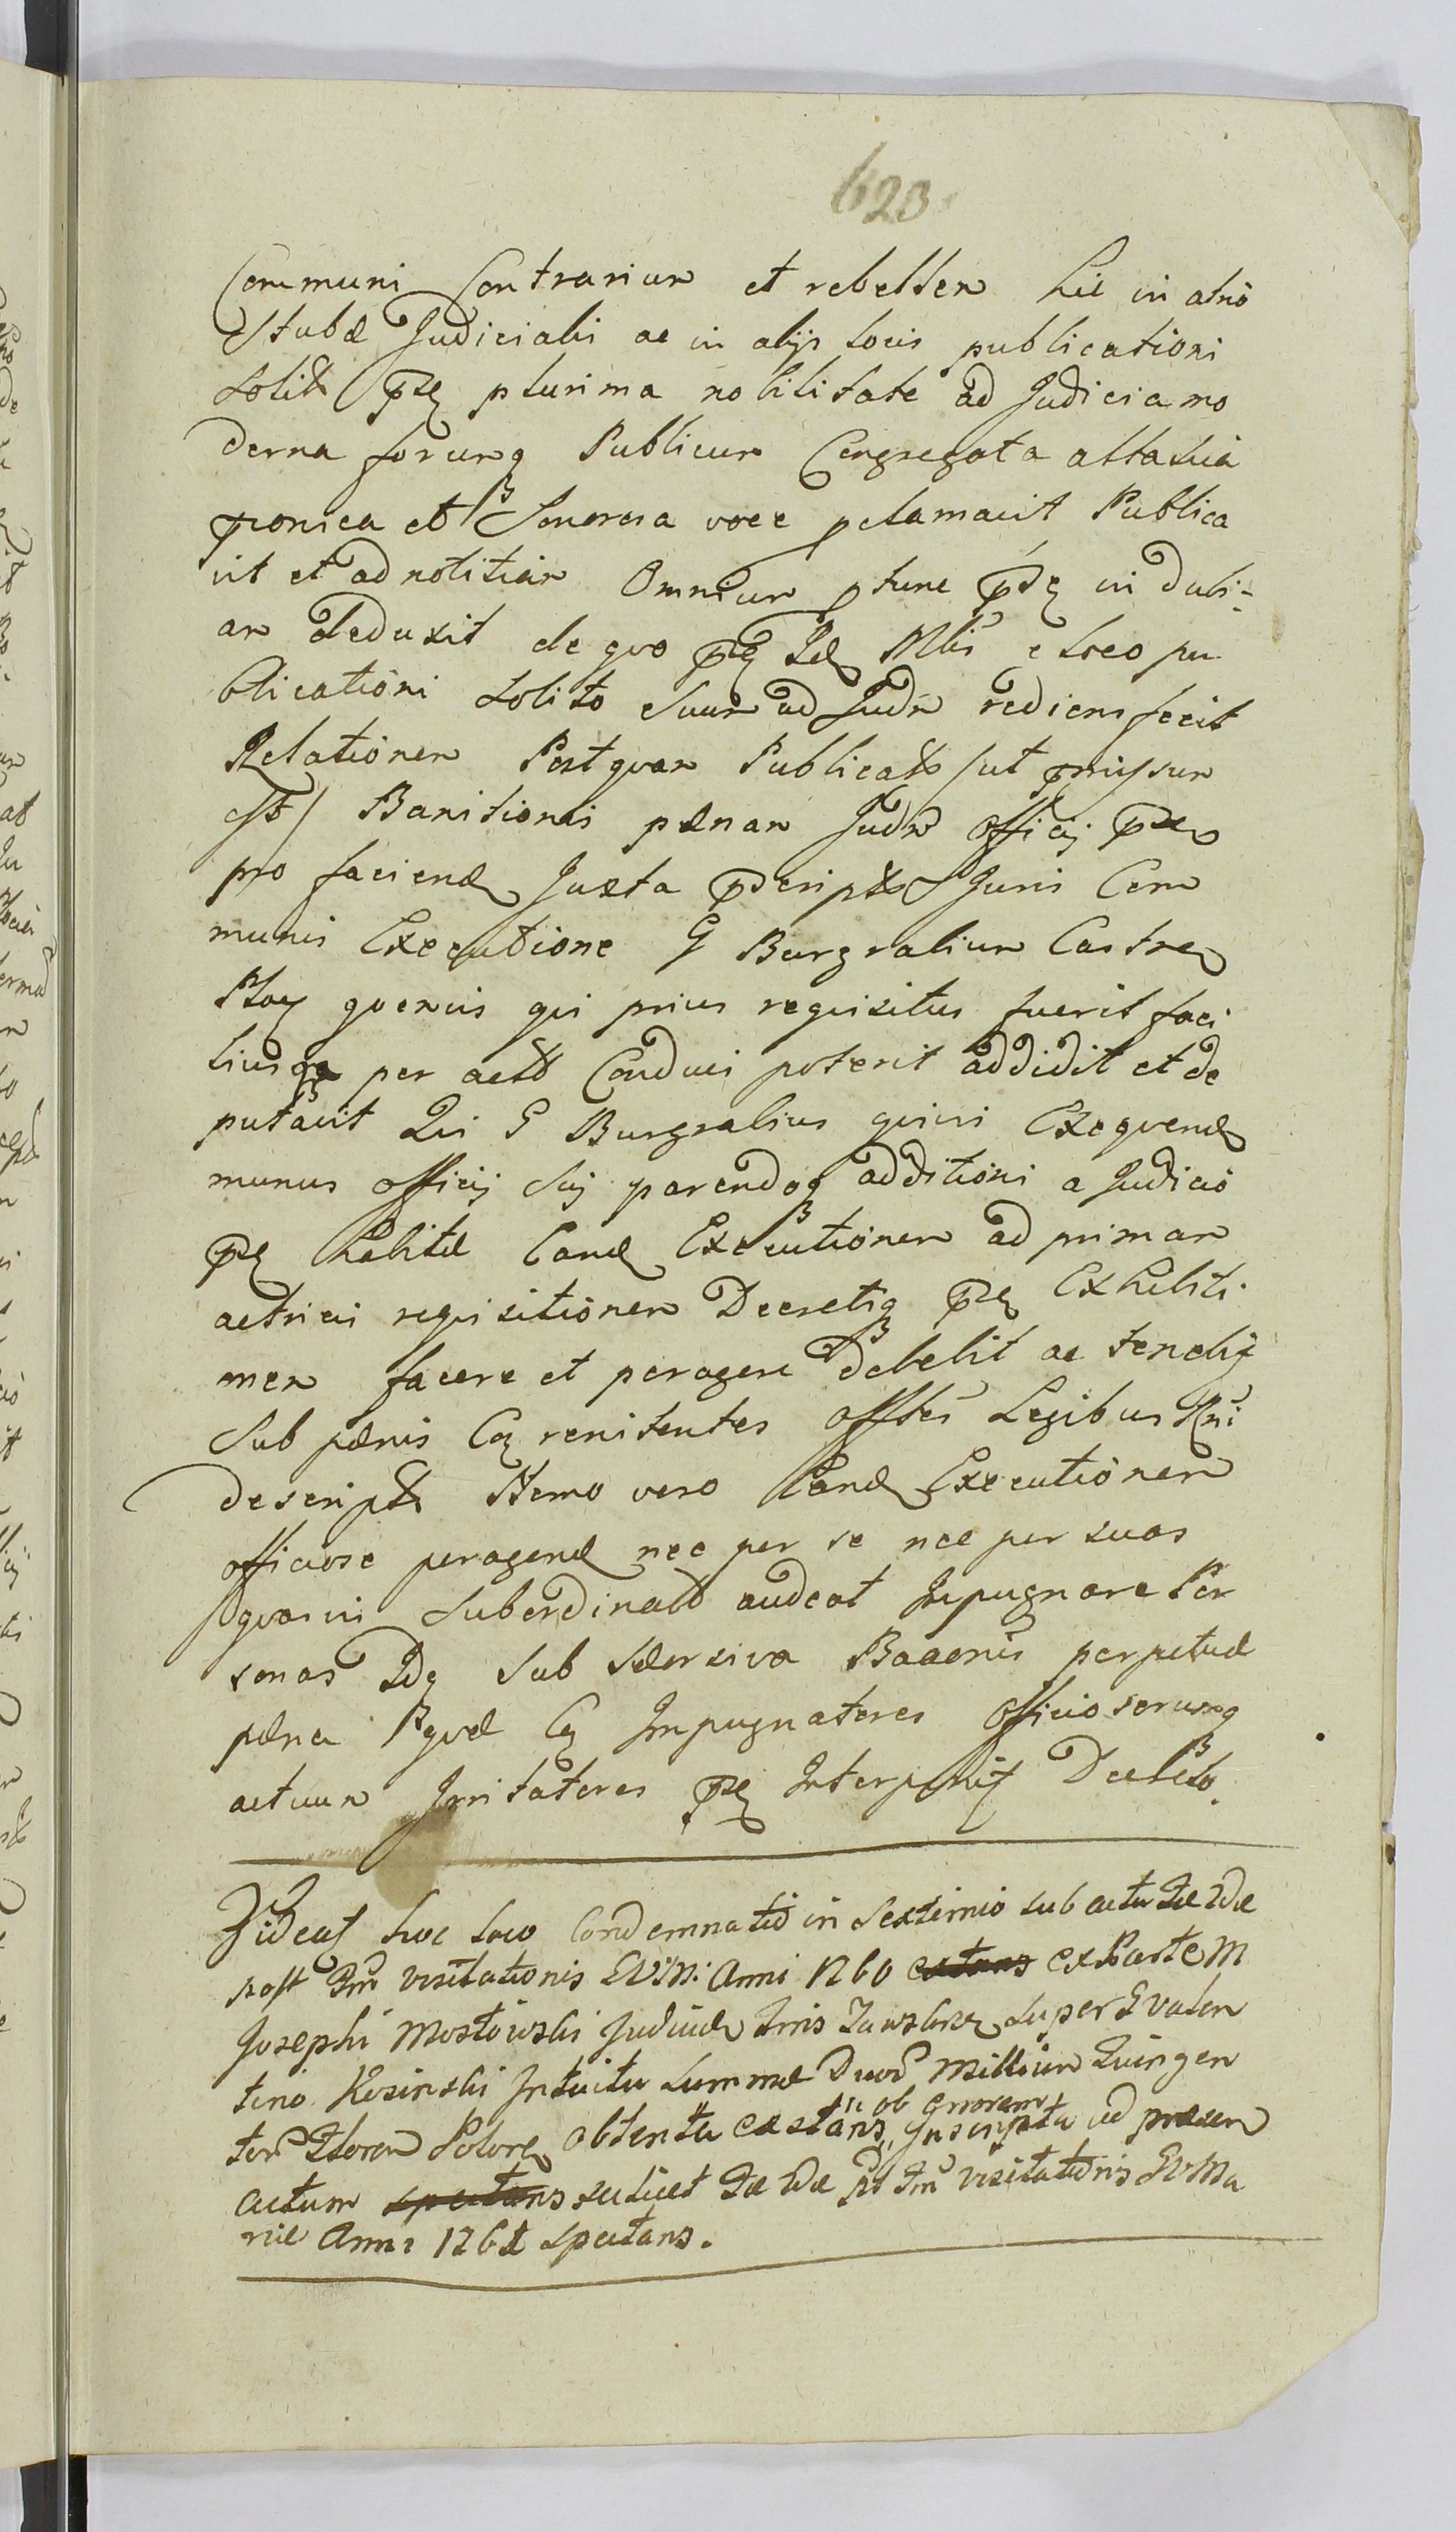 623
Communi Contrarium et rebellem hic in atrio
Stubæ Judicialis ac in alijs locis publicationi
solitis pñte plurima nobilitate ad Judicia mo
derna forumq Publicum Congregata alta
et Sonorosa voce pclamavit Publica
vit et ad notitiam Omnium ptunc pñtq in dubi-
am deduxit de quo pñtq Idq Mlis e loco pu
blicationi solito suum ad Judm rediens fecit
Relationem Postquam Publicatæ /ut pmissum
est/ Banitionis pænam Judm officij pñs
pro faciend Juxta pscriptum Juris Com
munis Executione G Burgrabium Castren
quemvis qui prius requisitus fuerit faci
liusq per act Conduci poterit addidit et de
putavit Qui G Burgrabius quivis Exequend
munus officij sui parendoq additioni a Judicio
pñtq habitæ Eand Executionem ad primam
actricis requisitionem Decretiq pñtq Exhibiti
onem facere et peragere debebit ac tenebit
Sub pænis Cq renitentes offles Legibus Rni
descriptis Nemo vero Eand Executionem
officiose peragend nec per se nec per suas
quasvis Subordinatas audeat Impugnare Per
sonas Idq Sub Banonis perpetuæ
pæna quæ Cq Impugnatores officiosorumq
actuum Irritatores pñtq Interponit Decreto.
Videat hoc loco Condemnatio in Sexternio sub actu Fæ 2dæ
post Fm visitationis BVM: Anni 1760 extans ex Parte M
Josephi Mostowski Judicis Trris Zawskrz super G Valen
tino Kosinski Intuitu summæ Duor Millium Quingen
tor Floren Polon obtenta extans, Inscripta ad præsen
ob errorem
actum spectans scilicet Fæ 2dæ pt Fm visitationis BVMa
riæ Anni 1761 spectans.